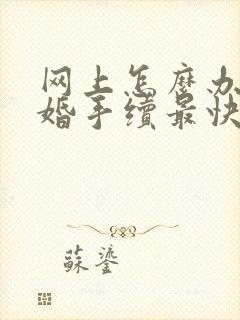 网上怎麽办
婚手续最快
蘇鎏